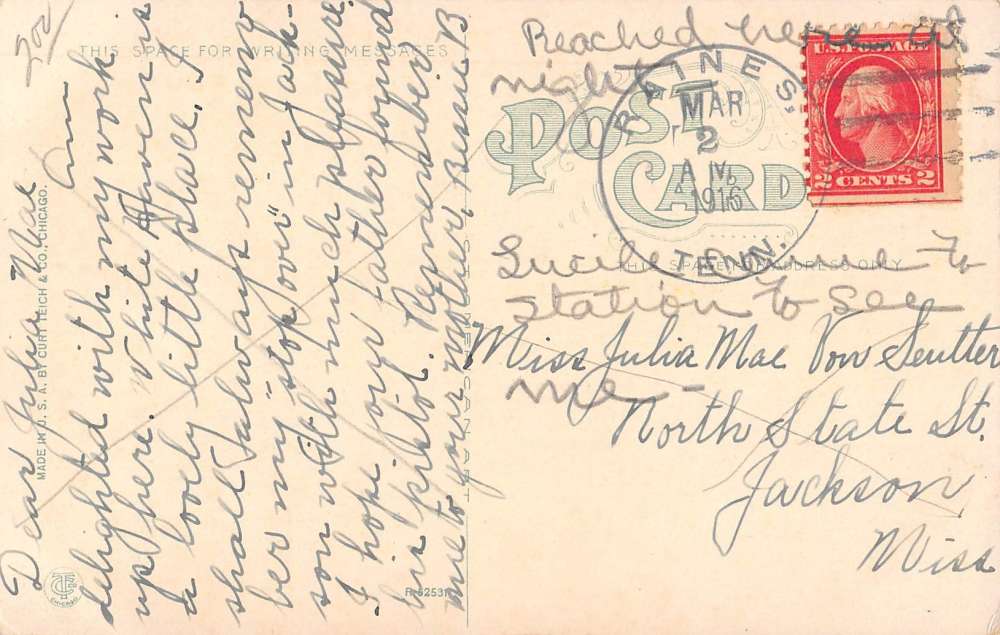 200
THIS SPACE FOR WRITING MESSAGES
Dear Julia Mae
Am
delighted with my work
up here. White Haven is
a lovely little place. I
shall always remem-
ber my "stop over" in Jack-
son with much pleasure.
I hope your father found
his pistol. Remembered
me to your mother, Bessie B
MADE IN U. S. A. BY CURT TEICH & CO., CHICAGO.
CHICAGO
R-62531
Reached here at
night
POST CARD
RAINES,
MAR
2
A M
1916
TENN.
U.S. POSTAGE
2 CENTS 2
Lucile came to
THIS SPACE FOR ADDRESS ONLY
station to see
me -
Miss Julia Mae Von Seutter
North State St.
Jackson
Miss